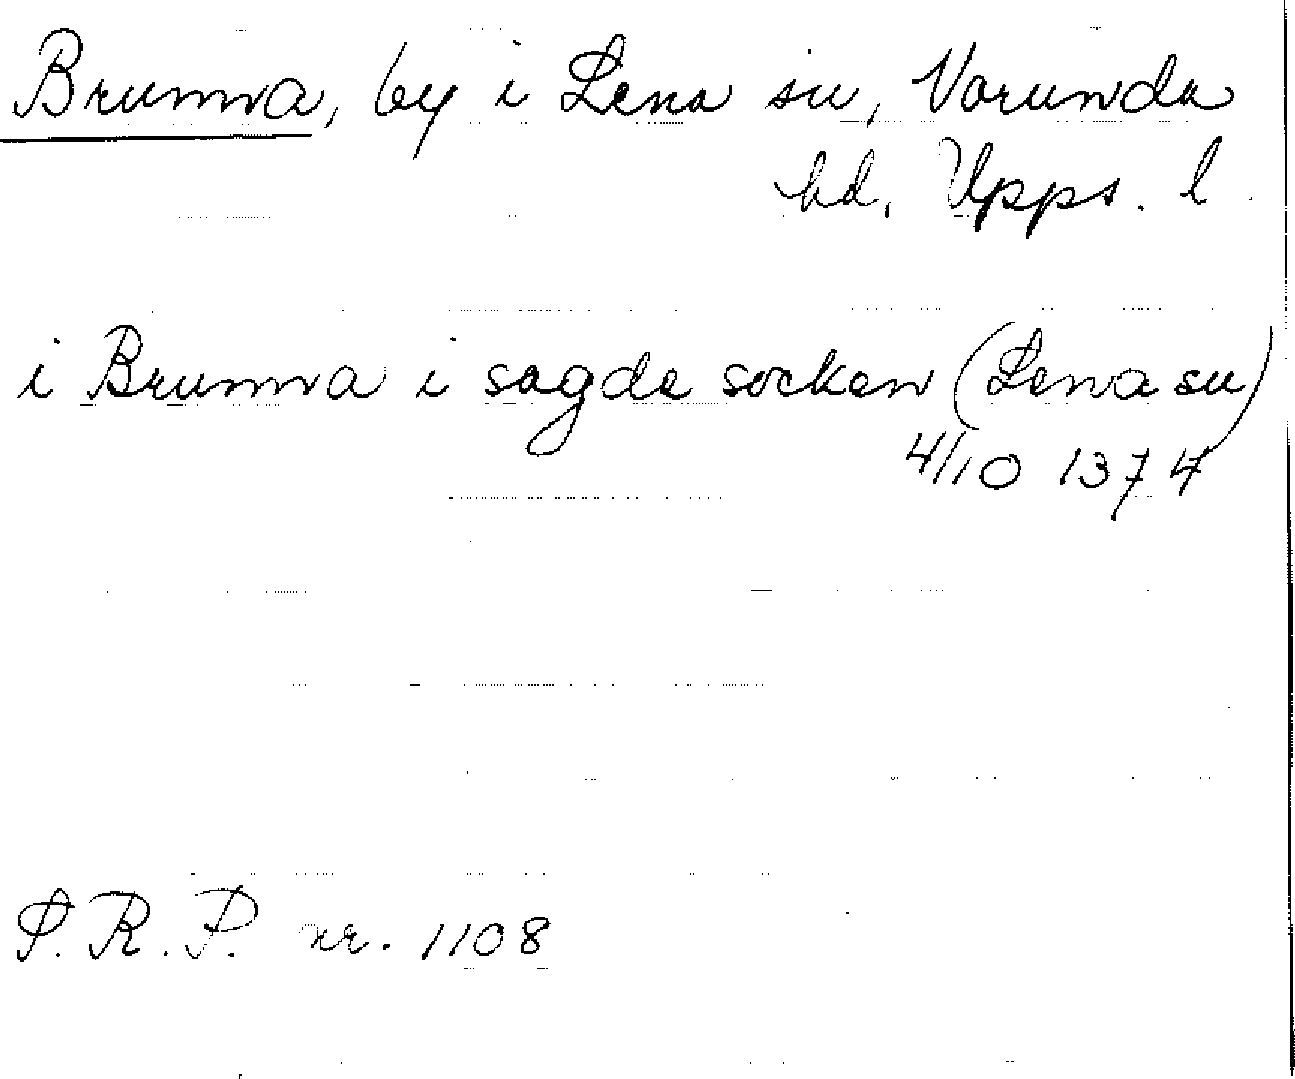 Brunna, by i Lena sn, Vorunda
hd, Upps. l.
i Brunna i sagde socken (Lena sn)
4/10 1374
S.R.P. nr. 1108